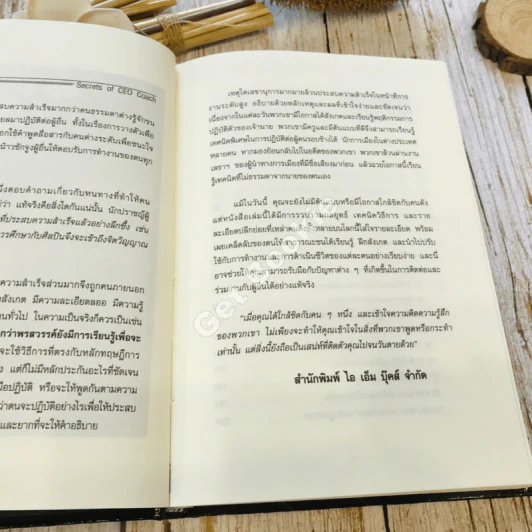 Secrets of CEO Coach
ความสำเร็จมากกว่าคนธรรมดาต่างรู้จักชน
ยลมาปฏิบัติต่อผู้อื่น ทั้งในเรื่องการวางตัวเพื่อ
ือกใช้คำพูดสื่อสารกับคนต่างระดับเพื่อชนะใจ
น้าวชักจูงผู้อื่นให้ตอบรับการทำงานของตนทุก
ึ่งตอบคำถามเกี่ยวกับหนทางที่ทำให้คน
ว่า แท้จริงคือสิ่งใดกันแน่นั้น นักปราชญ์ผู้
ที่ประสบความสำเร็จแล้วอย่างลึกซึ้ง เช่น
ารศึกษากับศิลปินจึงจะเข้าถึงจิตวิญญาณ
วามสำเร็จส่วนมากจึงถูกคนภายนอก
ังเกต มีความละเอียดลออ มีความรู้
นทั่วไป ในความเป็นจริงก็ควรเป็นเช่น
กว่าพรสวรรค์ยังมีการเรียนรู้เพื่อจะ
จะใช้วิธีการที่ตรงกับหลักทฤษฎีการ
แต่ก็ไม่มีหลักประกันอะไรที่ชัดเจน
ือปฏิบัติ หรือจะให้พูดกันตามความ
ว่าตนจะปฏิบัติอย่างไรเพื่อให้ประสบ
และยากที่จะให้คำอธิบาย
เหตุใดเลขานุการมากมายล้วนประสบความสำเร็จในหน้าที่การ
งานระดับสูง อธิบายด้วยหลักเหตุและผลที่เข้าใจง่ายและชัดเจนว่า
เนื่องจากในแต่ละวันพวกเขามีโอกาสได้สังเกตและเรียนรู้พฤติกรรมการ
ปฏิบัติตัวของเจ้านาย พวกเขามีครูและมีต้นแบบที่ดีจึงสามารถเรียนรู้
เทคนิคพิเศษในการปฏิบัติต่อผู้คนรอบข้างได้ นักการเมืองในต่างประเทศ
หลายคน หากมองย้อนกลับไปในอดีตของพวกเขา พวกเขาล้วนผ่านงาน
เลขาฯ ของผู้นำทางการเมืองที่มีชื่อเสียงมาก่อน แล้วฉวยโอกาสนี้เรียน
รู้เทคนิคที่ไม่ธรรมดาจากนายของตนเอง
แม้ในวันนี้ คุณจะยังไม่มีต้นแบบหรือมีโอกาสใกล้ชิดกับคนดัง
แต่หนังสือเล่มนี้ได้มีการรวบรวมกลยุทธ์ เทคนิควิธีการ และราย
ละเอียดปลีกย่อยที่เหล่าคนดัง
เผยเคล็ดลับของตนให้สาธารณะชนได้เรียนรู้ ฝึกสังเกต และนำไปปรับ
ใช้กับการทำงานและการดำเนินชีวิตของแต่ละคนอย่างเรียบง่าย และนี่
อาจช่วยให้คุณสามารถรับมือกับปัญหาต่าง ๆ ที่เกิดขึ้นในการติดต่อและ
ร่วมงานกับผู้อื่นได้อย่างแท้จริง
"เมื่อคุณได้ใกล้ชิดกับคน ๆ หนึ่ง และเข้าใจความคิดความรู้สึก
ของพวกเขา ไม่เพียงจะทำให้คุณเข้าใจในสิ่งที่พวกเขาพูดหรือกระทำ
เท่านั้น แต่สิ่งนี้ยังถือเป็นเสน่ห์ที่ติดตัวคุณไปจนวันตายด้วย"
สำนักพิมพ์ ไอ เอ็ม บุ๊คส์ จำกัด